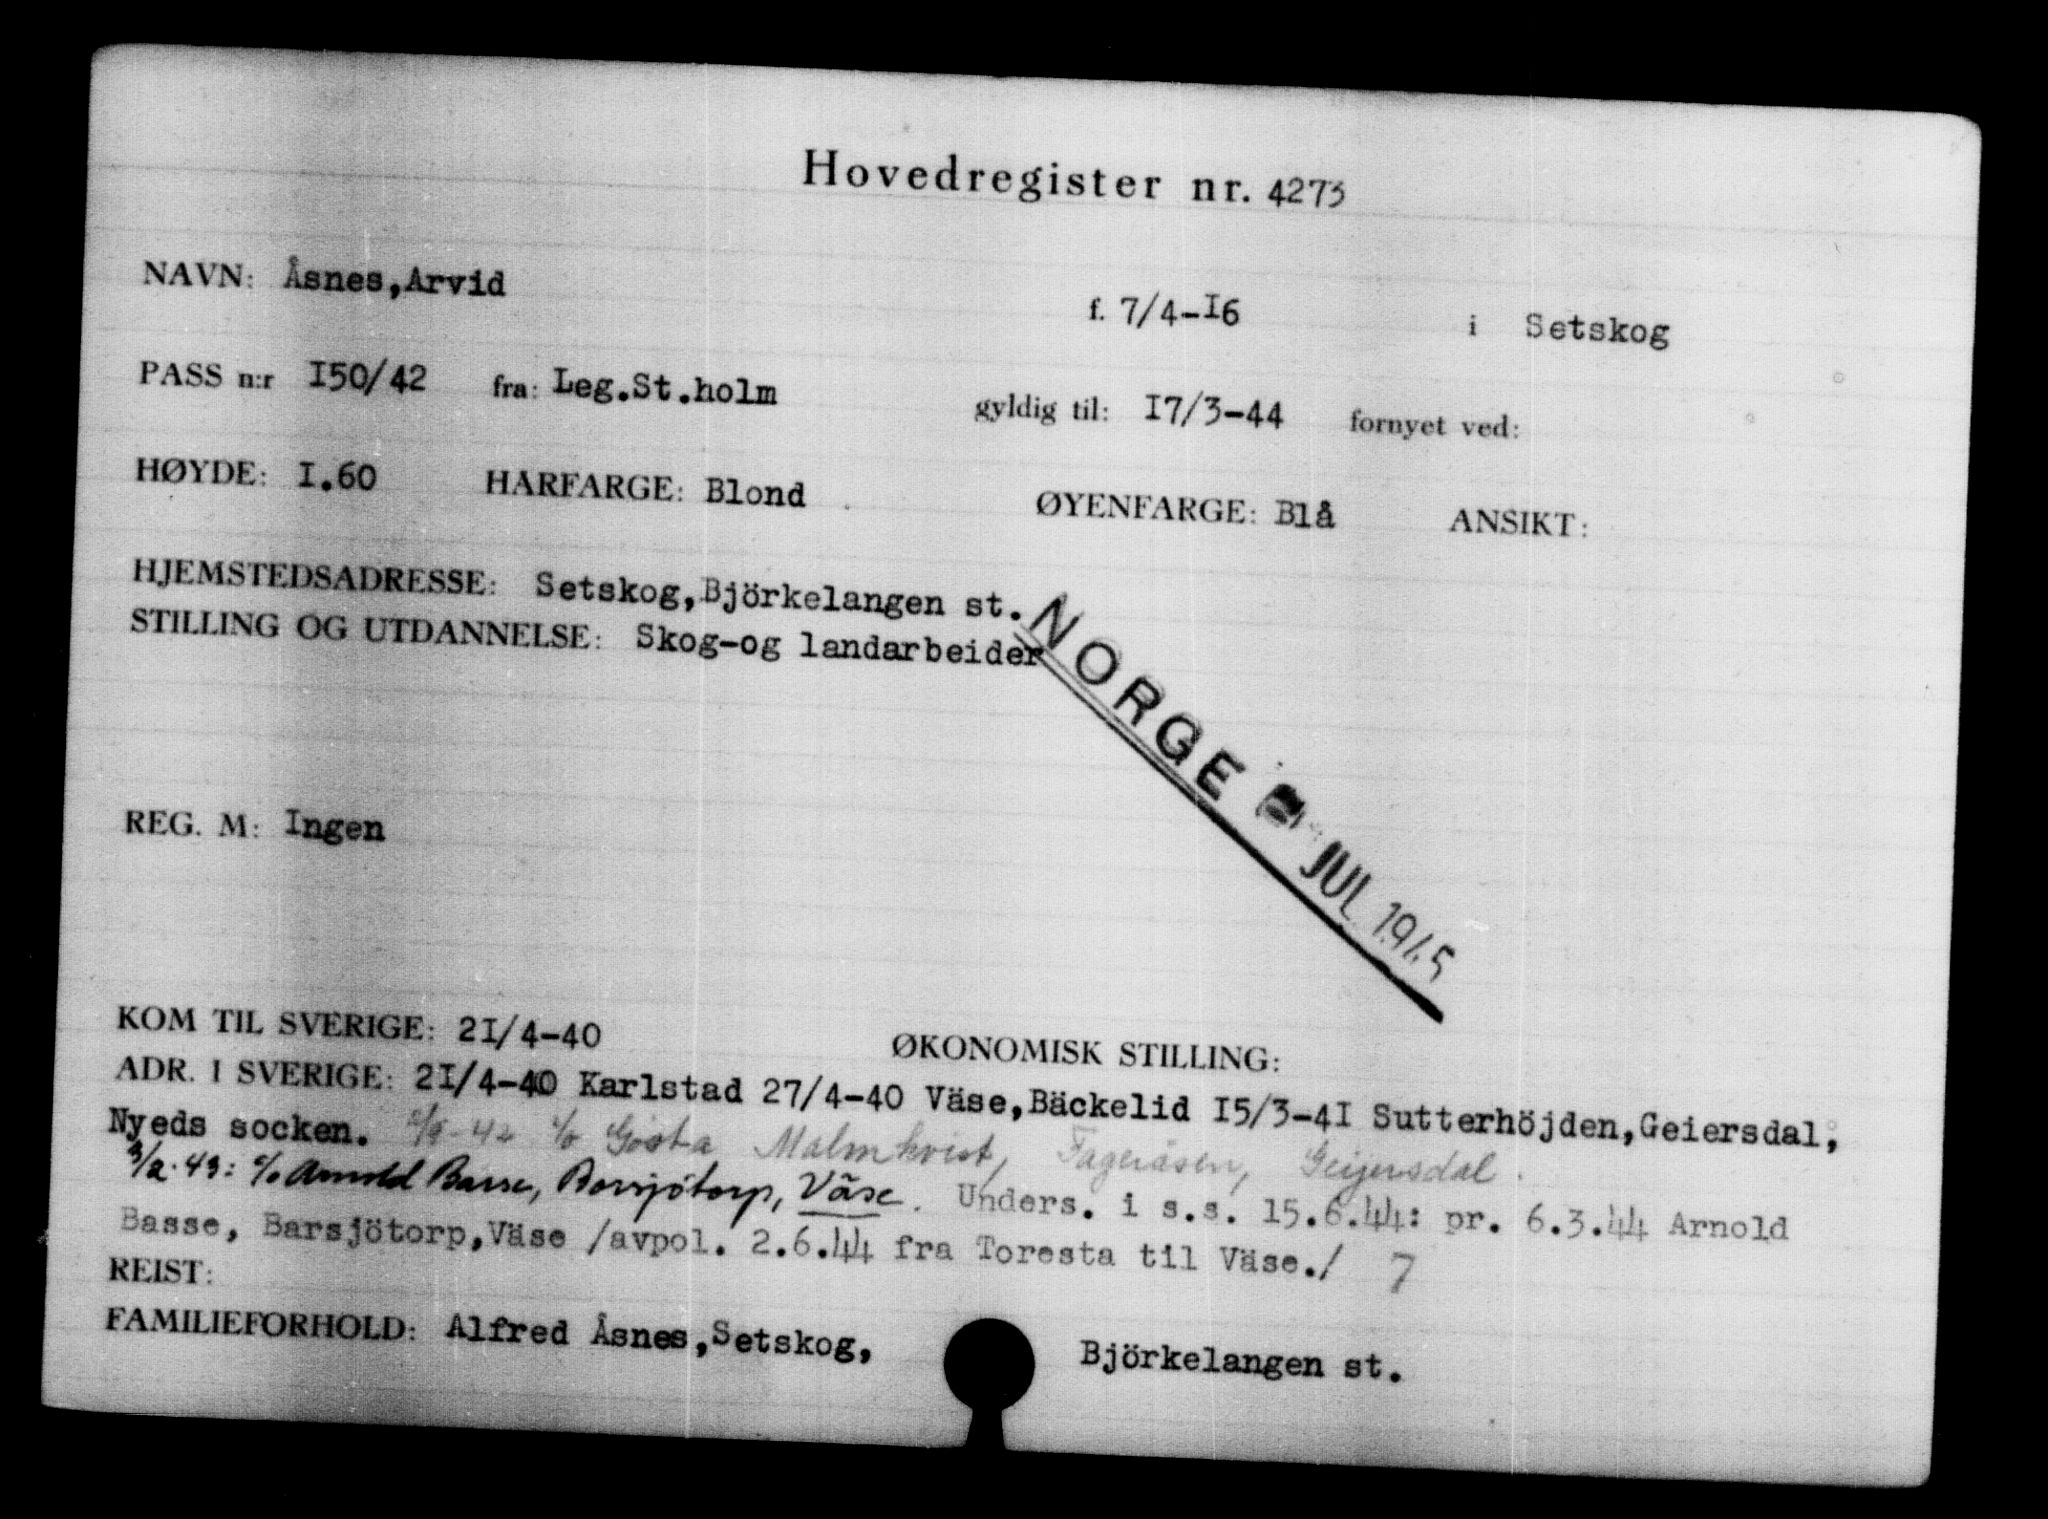 Hovedregister nr. 4273
NAVN: Åsnes,Arvid f. 7/4-I6 i Setskog
PASS n:r I50/42 fra: Leg.St.holm gyldig til: I7/3-44 fornyet ved:
HØYDE: I.60 HÅRFARGE: Blond ØYENFARGE: Blå ANSIKT:
HJEMSTEDSADRESSE: Setskog,Björkelangen st.
STILLING OG UTDANNELSE: Skog-og landarbeider
NORGE JUL 1945
REG. M: Ingen
KOM TIL SVERIGE: 2I/4-40 ØKONOMISK STILLING:
ADR. I SVERIGE: 2I/4-40 Karlstad 27/4-40 Väse,Bäckelid I5/3-4I Sutterhöjden,Geiersdal,
Nyeds socken. -42 c/o Gösta Malmkvist, Fageråsen, Geijersdal.
3/2.43: c/o Arnold Basse, Barsjötorp, Väse. Unders. i s.s. 15.6.44: pr. 6.3.44 Arnold
Basse, Barsjötorp,Väse /avpol. 2.6.44 fra Toresta til Väse./ 7
REIST:
FAMILIEFORHOLD: Alfred Åsnes,Setskog, Björkelangen st.